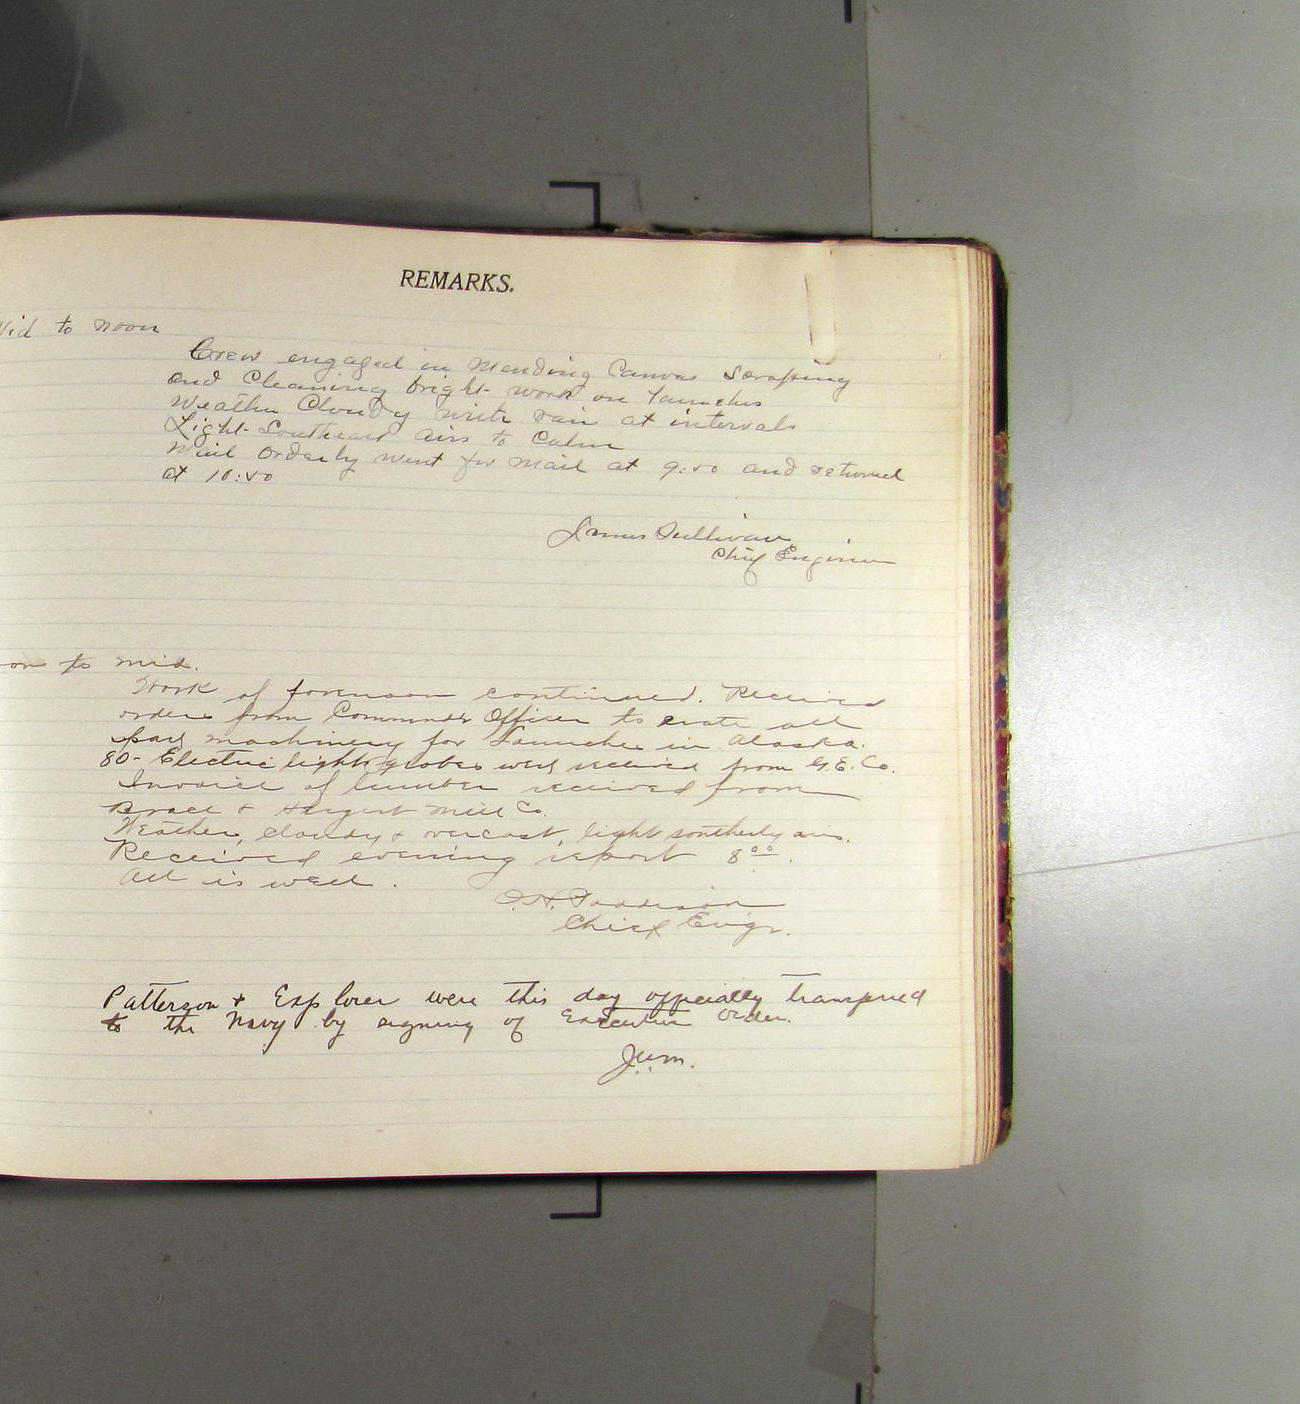 REMARKS.
Mid to noon
Crew engaged in Mending Canvas Scraping
and Cleaning bright work on launches
Weather Cloudy with rain at intervals
Light Southeast airs to Calm
Mail Orderly went for mail at 9:50 and returned
at 10:50
James Sullivan
Chief Engineer
on to mid.
Work of forenoon continued. Received
orders from Officer to crate all
machinery for Launches in Alaska.
80- Electric light globes were received from G.E. Co.
Invoice of lumber received from
Brace & Hergert Mill Co.
Weather, cloudy & overcast, light southerly airs.
Received evening report 8⁰⁰.
All is well.
Chief Engr.
Patterson & Explorer were this day officially transferred
to the Navy by signing of Executive Order.